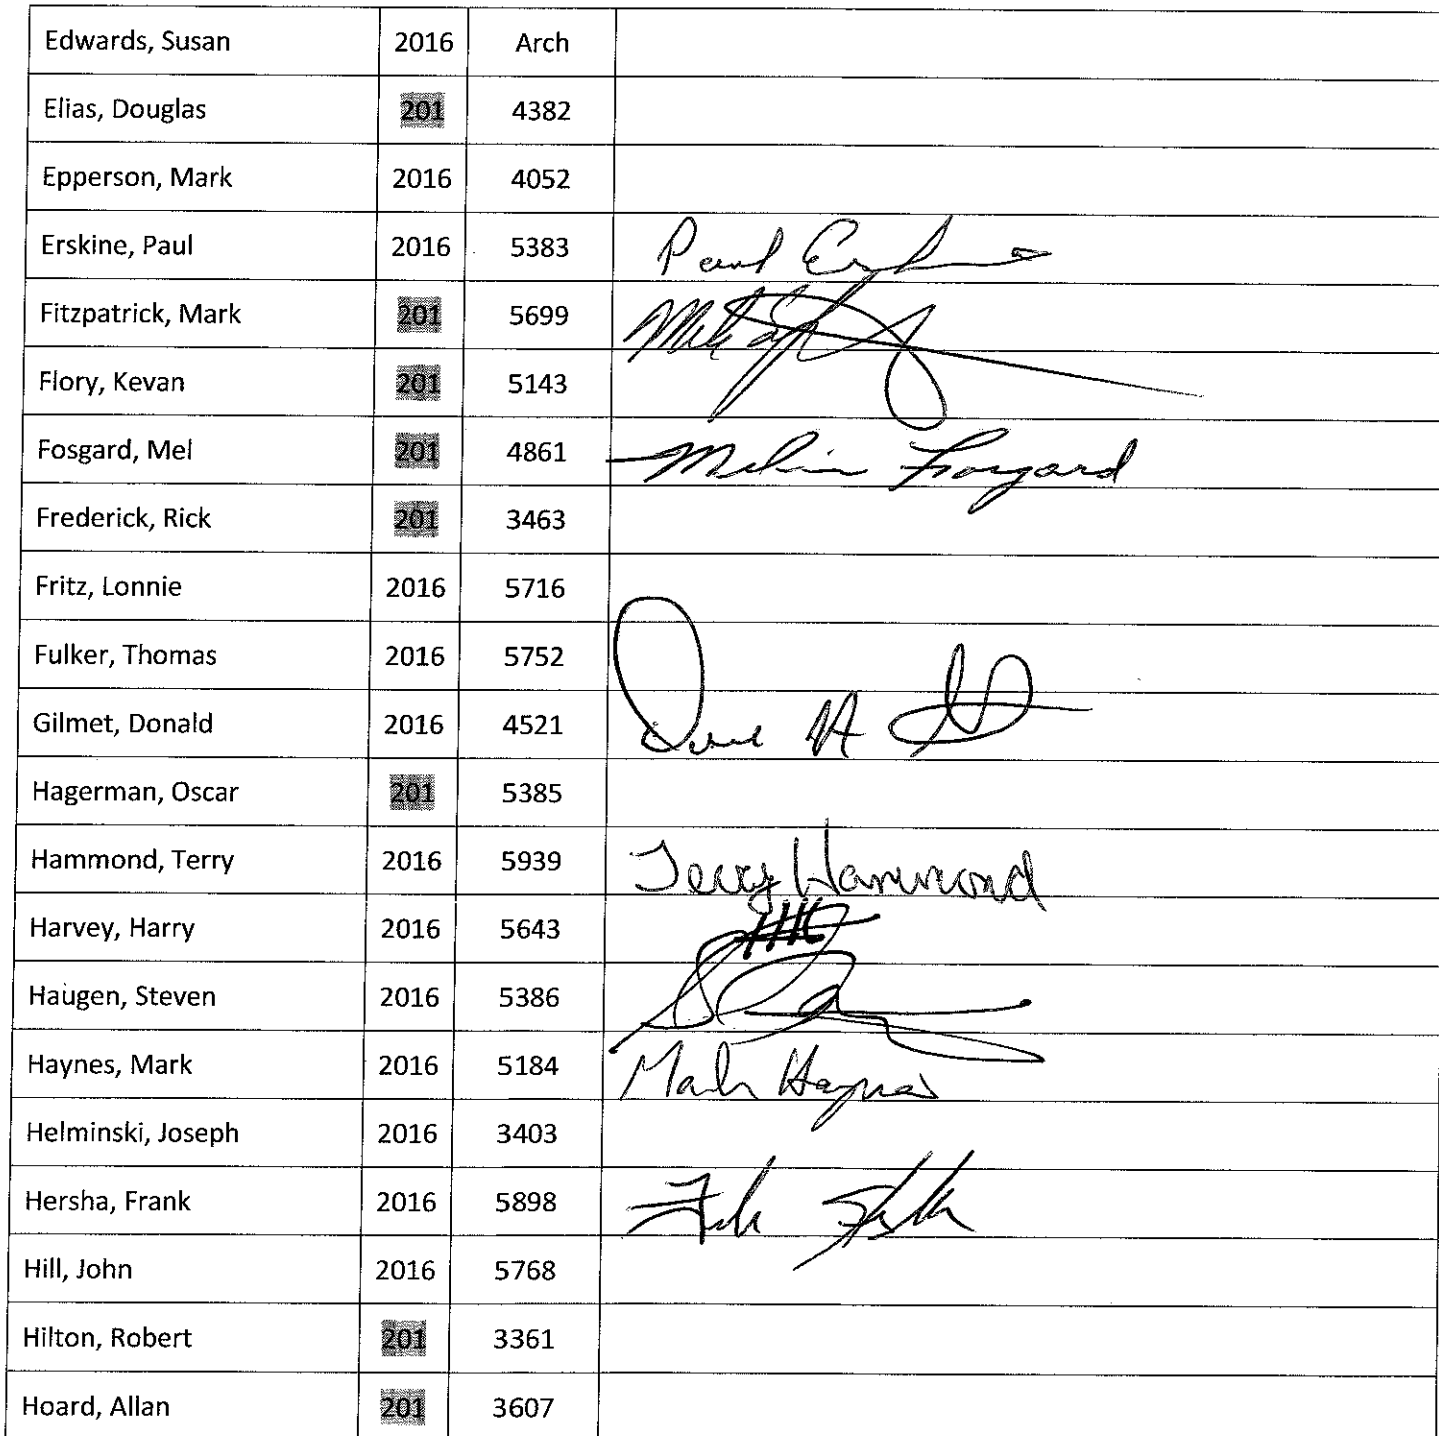 Edwards, Susan 2016 Arch
Elias, Douglas 201 4382
Epperson, Mark 2016 4052
Erskine, Paul 2016 5383 Paul
Fitzpatrick, Mark 201 5699
Flory, Kevan 201 5143
Fosgard, Mel 201 4861 Melvin Fosgard
Frederick, Rick 201 3463
Fritz, Lonnie 2016 5716
Fulker, Thomas 2016 5752
Gilmet, Donald 2016 4521
Hagerman, Oscar 201 5385
Hammond, Terry 2016 5939 Terry Hammond
Harvey, Harry 2016 5643
Haugen, Steven 2016 5386
Haynes, Mark 2016 5184 Mark Haynes
Helminski, Joseph 2016 3403
Hersha, Frank 2016 5898
Hill, John 2016 5768
Hilton, Robert 201 3361
Hoard, Allan 201 3607